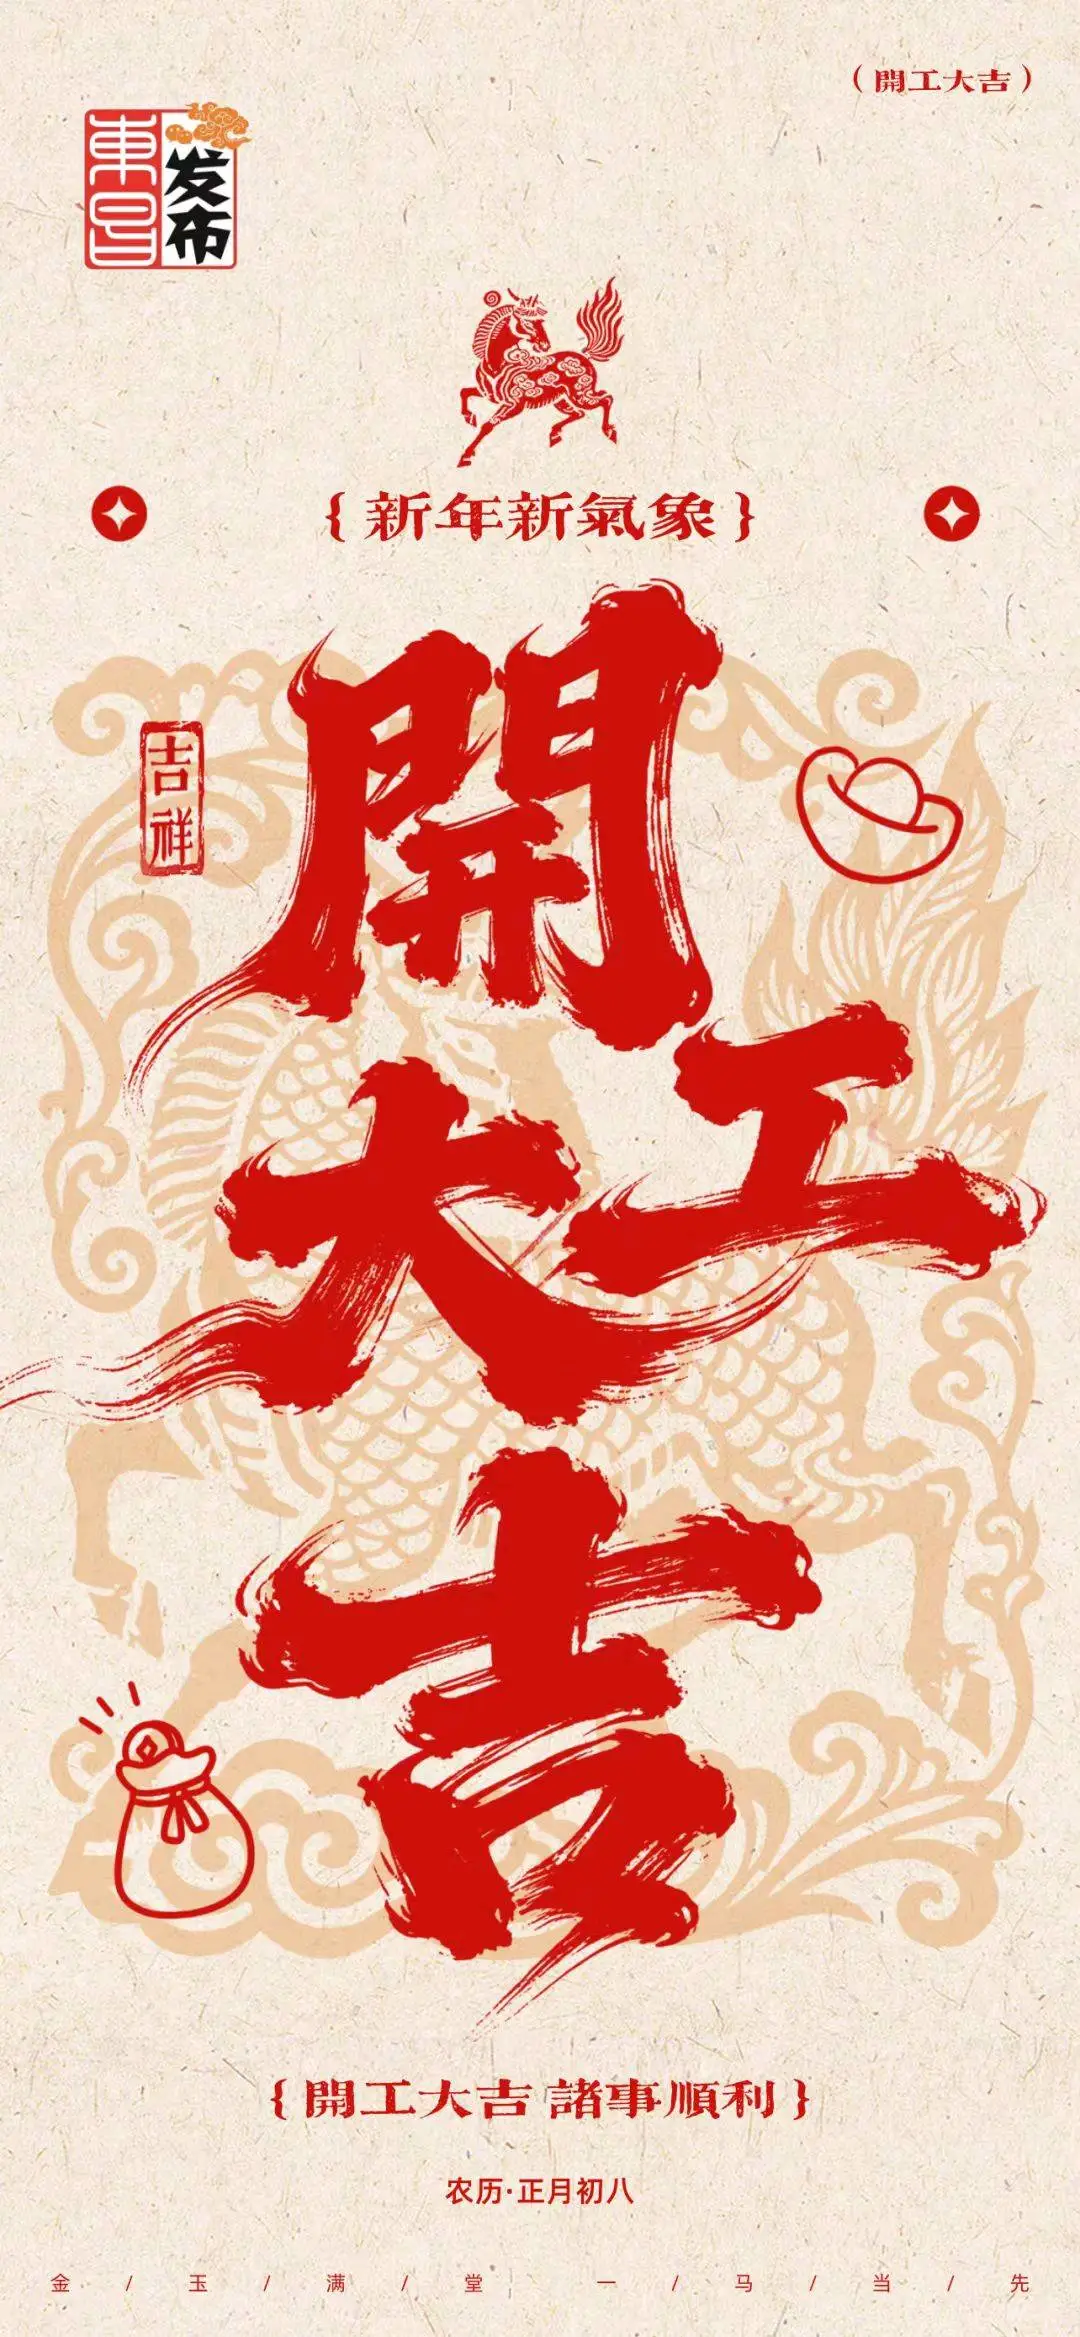 （開工大吉）
東昌
发布
{新年新氣象}
吉祥
開
工
大
吉
{開工大吉 諸事順利}
农历·正月初八
金 / 玉 / 满 / 堂 一 / 马 / 当 / 先